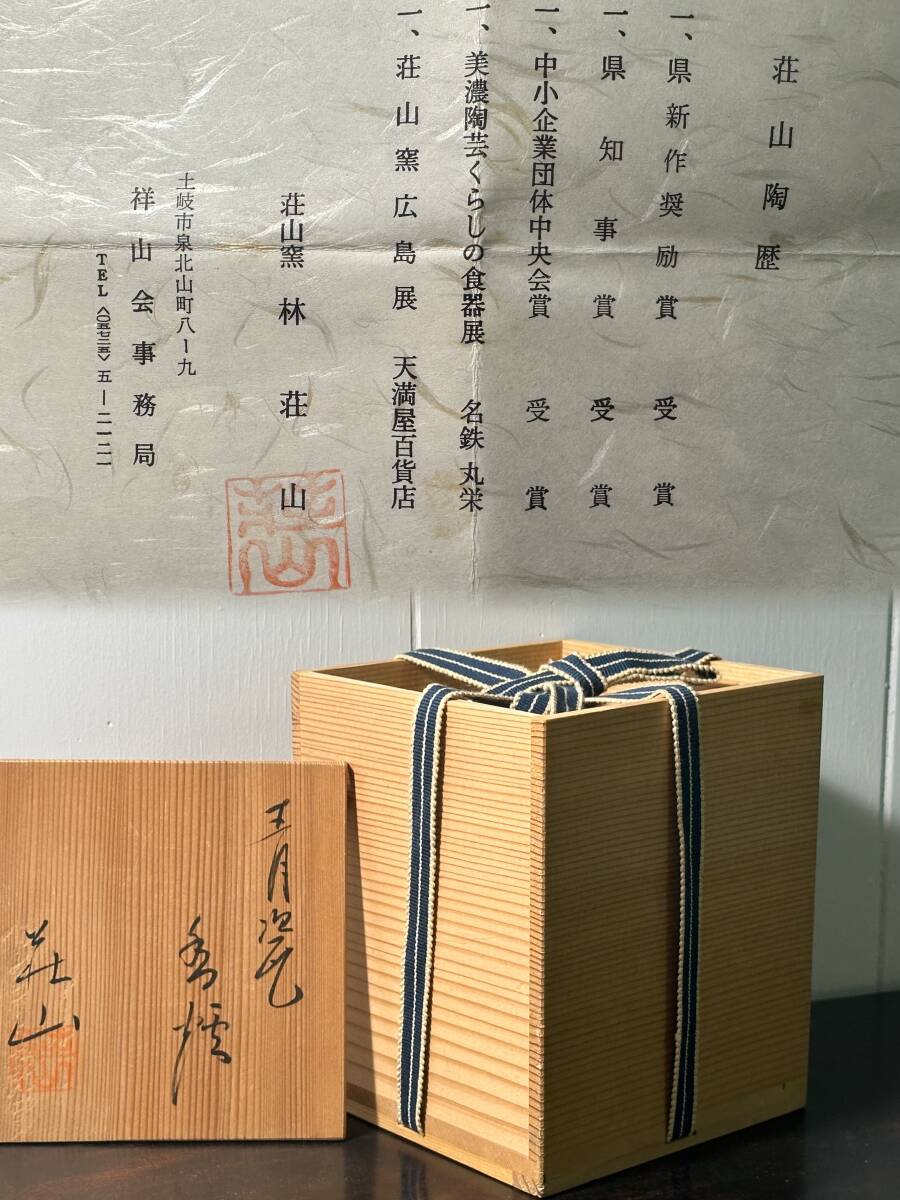 荘山陶歴
一、県新作奨励賞 受賞
一、県知事賞 受賞
一、中小企業団体中央会賞 受賞
一、美濃陶芸くらしの食器展 名鉄 丸栄
一、荘山窯広島展 天満屋百貨店
荘山窯 林 荘山
土岐市泉北山町八ー九
祥山会事務局
TEL〈〇五七二五〉五ー二一二一
青瓷
香炉
荘山